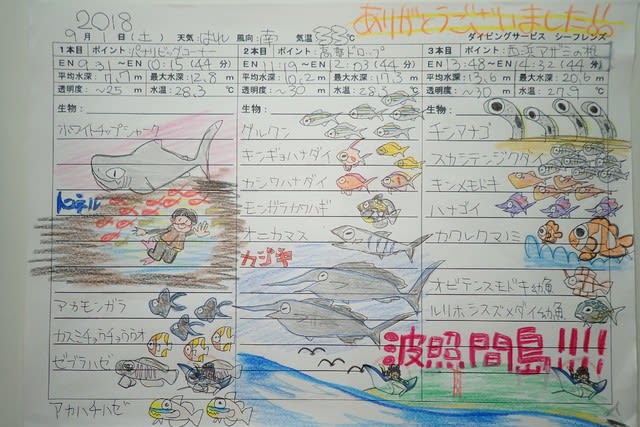 2018
ありがとうございました!!
9月1日(土) 天気:はれ 風向:南 気温:33℃ ダイビングサービス シーフレンズ
1本目 ポイント:パナリビッグコーナー
EN 9:31 EX 10:15 (44分)
平均水深: 7.7m 最大水深: 12.8m
透明度: ~25m 水温: 28.3℃
生物:
ホワイトチップシャーク
トンネル
アカモンガラ
カスミチョウチョウウオ
ゼブラハゼ
アカハチハゼ
2本目 ポイント:高那ドロップ
EN 11:19 EX 12:03 (44分)
平均水深: 10.2m 最大水深: 17.3m
透明度: ~30m 水温: 28.3℃
生物:
グルクン
キンギョハナダイ
カシワハナダイ
モンガラカワハギ
オニカマス
カジキ
3本目 ポイント:西浜アザミの根
EN 13:48 EX 14:32 (44分)
平均水深: 13.6m 最大水深: 20.6m
透明度: ~30m 水温: 27.9℃
生物:
チンアナゴ
スカシテンジクダイ
キンメモドキ
ハナゴイ
カワレクマノミ
オビテンスモドキ幼魚
ルリホシスズメダイ幼魚
波照間島!!!!